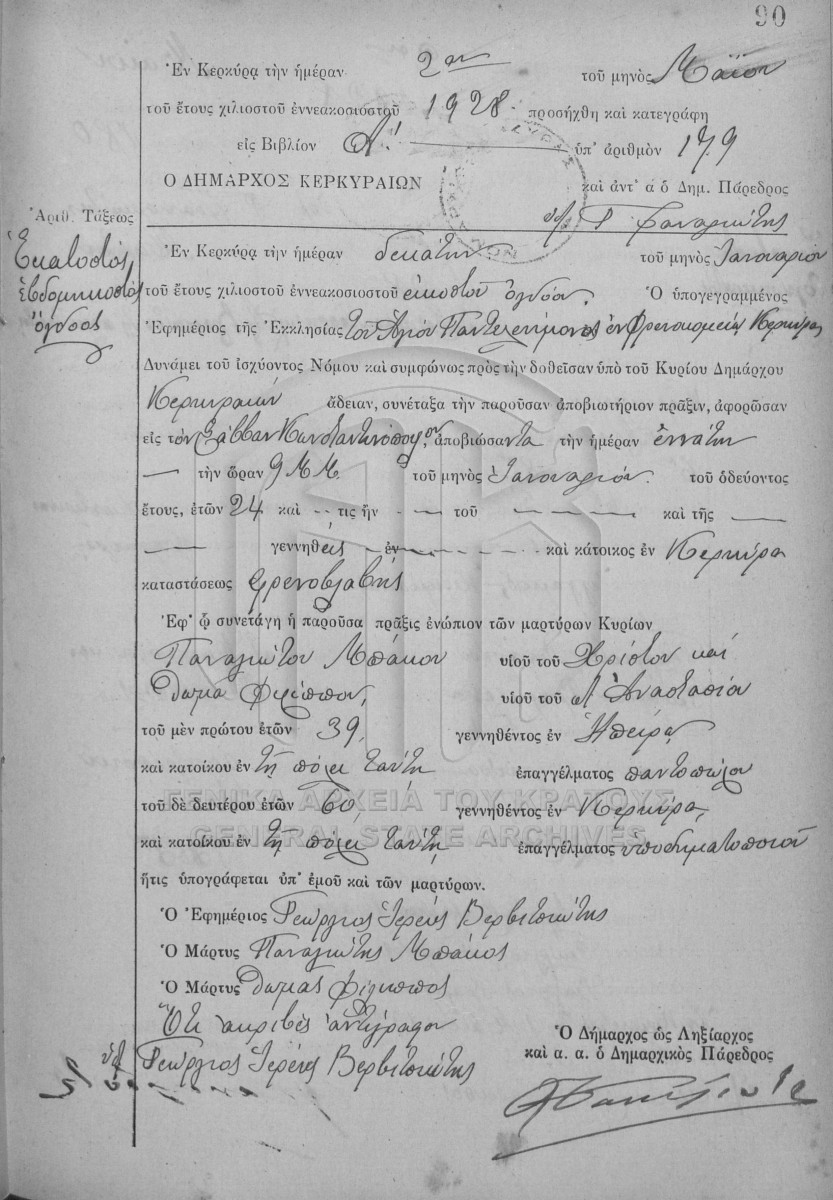 90
Ἐν Κερκύρᾳ τὴν ἡμέραν 2αν τοῦ μηνὸς Μαΐου
τοῦ ἔτους χιλιοστοῦ ἐννεακοσιοστοῦ 1928 προσήχθη καὶ κατεγράφη
εἰς Βιβλίον Α΄ ὑπ' ἀριθμὸν 179
Ὁ ΔΗΜΑΡΧΟΣ ΚΕΡΚΥΡΑΙΩΝ καὶ ἀντ' α ὁ Δημ. Πάρεδρος
Ἀριθ. Τάξεως
Ἑκατοστὸς
ἑβδομηκοστὸς
ὄγδοος
Ἐν Κερκύρᾳ τὴν ἡμέραν δεκάτην τοῦ μηνὸς Ἰανουαρίου
τοῦ ἔτους χιλιοστοῦ ἐννεακοσιοστοῦ εἰκοστοῦ ὀγδόου. Ὁ ὑπογεγραμμένος
Ἐφημέριος τῆς Ἐκκλησίας τοῦ Ἁγίου Παντελεήμονος ἐν Φρενοκομείῳ Κερκύρας
Δυνάμει τοῦ ἰσχύοντος Νόμου καὶ συμφώνως πρὸς τὴν δοθεῖσαν ὑπὸ τοῦ Κυρίου Δημάρχου
Κερκυραίων ἄδειαν, συνέταξα τὴν παροῦσαν ἀποβιωτήριον πρᾶξιν, ἀφορῶσαν
εἰς τὸν Σάββαν Κωνσταντινόπουλον, ἀποβιώσαντα τὴν ἡμέραν ἐννάτην
— τὴν ὥραν 9 Μ.Μ. τοῦ μηνὸς Ἰανουαρίου τοῦ ὁδεύοντος
ἔτους, ἐτῶν 24 καὶ - - τις ἦν - - τοῦ - - - - καὶ τῆς —
— γεννηθεὶς ἐν - - - - καὶ κάτοικος ἐν Κερκύρᾳ
καταστάσεως φρενοβλαβής
Ἐφ' ᾧ συνετάγη ἡ παροῦσα πρᾶξις ἐνώπιον τῶν μαρτύρων Κυρίων
Παναγιώτου Μπάκου υἱοῦ τοῦ Χρίστου καὶ
Θωμᾶ Φιλίππου, υἱοῦ τοῦ Ἀναστασίου
τοῦ μὲν πρώτου ἐτῶν 39, γεννηθέντος ἐν Ἠπείρῳ
καὶ κατοίκου ἐν τῇ πόλει ταύτῃ ἐπαγγέλματος παντοπώλου
τοῦ δὲ δευτέρου ἐτῶν 60, γεννηθέντος ἐν Κερκύρᾳ
καὶ κατοίκου ἐν τῇ πόλει ταύτῃ ἐπαγγέλματος ὑποδηματοποιοῦ
ΓΕΝΙΚΑ ΑΡΧΕΙΑ ΤΟΥ ΚΡΑΤΟΥΣ
GENERAL STATE ARCHIVES
ἥτις ὑπογράφεται ὑπ' ἐμοῦ καὶ τῶν μαρτύρων.
Ὁ Ἐφημέριος Γεώργιος Ἱερεὺς Βερβιτσιώτης
Ὁ Μάρτυς Παναγιώτης Μπάκος
Ὁ Μάρτυς Θωμᾶς Φίλιππος
Ὅτι ἀκριβὲς ἀντίγραφον
Γεώργιος Ἱερεὺς Βερβιτσιώτης
Ὁ Δήμαρχος ὡς Ληξίαρχος
καὶ α. α. ὁ Δημαρχικὸς Πάρεδρος